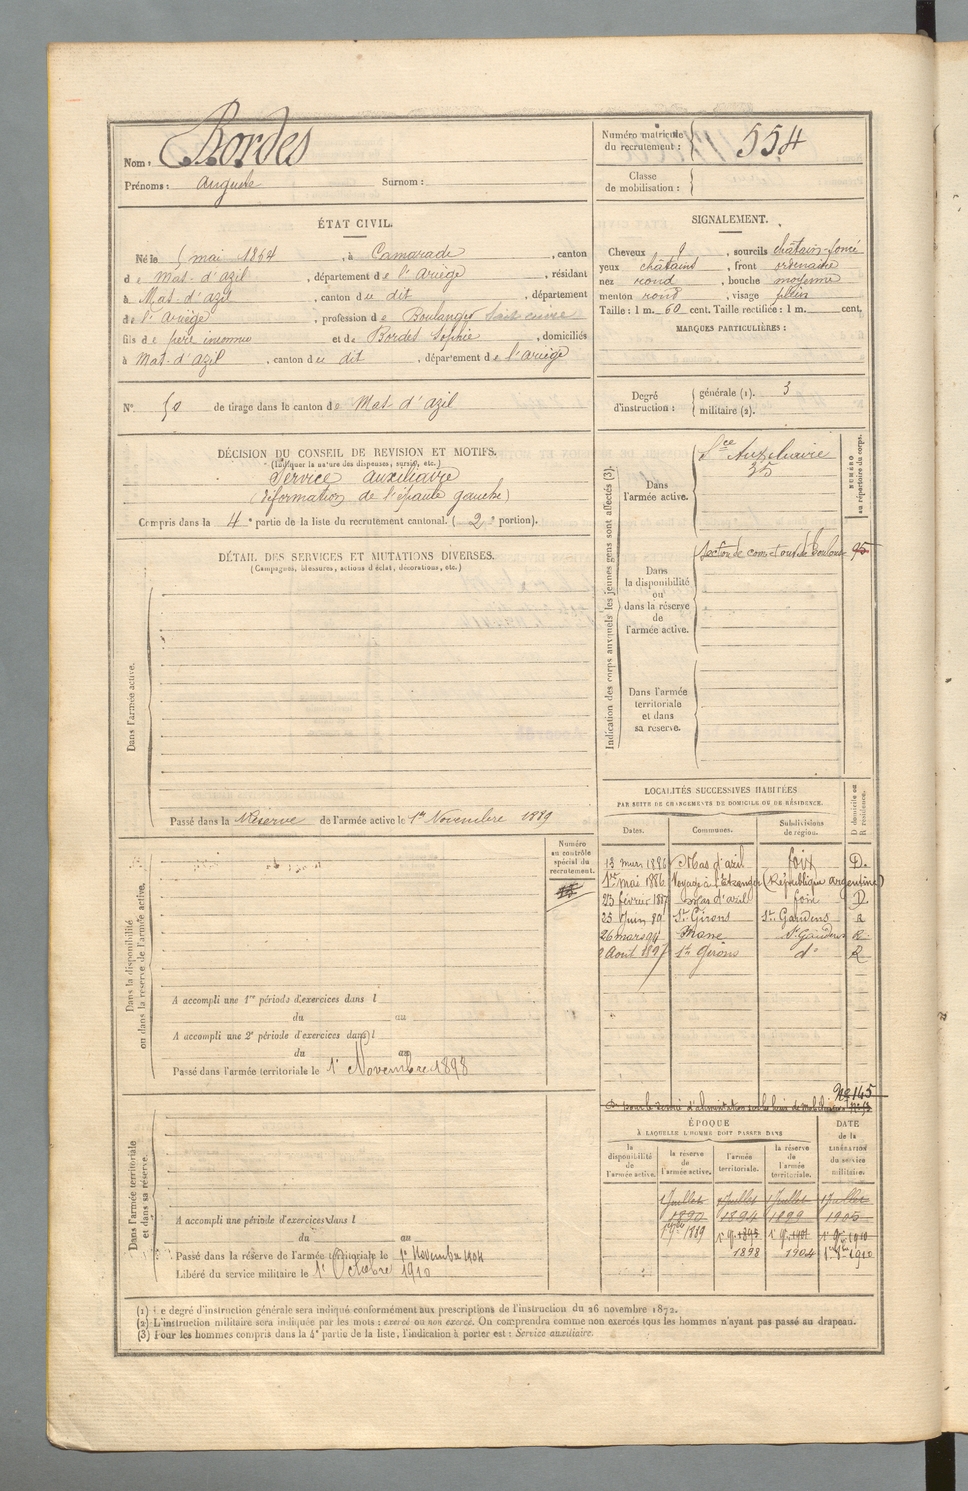 Nom : Bordes
Prénoms : Auguste Surnom :
Numéro matricule
du recrutement : 554
Classe
de mobilisation :
ÉTAT CIVIL.
Né le 5 mai 1864, à Camarade, canton
de Mas-d'azil, département de l'ariège, résidant
à Mas-d'azil, canton du dit, département
de l'ariège, profession de Boulanger
fils de père inconnu et de Bordes Sophie, domiciliés
à Mas-d'azil, canton du dit, département de l'ariège
SIGNALEMENT.
Cheveux d, sourcils châtain-foncé
yeux châtains, front ordinaire
nez rond, bouche moyenne
menton rond, visage plein
Taille : 1 m. 60 cent. Taille rectifiée : 1 m. cent.
MARQUES PARTICULIÈRES :
N° 50 de tirage dans le canton de Mas d'azil
Degré
d'instruction :
générale (1). 3
militaire (2).
DÉCISION DU CONSEIL DE REVISION ET MOTIFS.
(Indiquer la nature des dispenses, sursis, etc.)
Service auxiliaire
(déformation de l'épaule gauche)
Compris dans la 4e partie de la liste du recrutement cantonal. (2e portion).
DÉTAIL DES SERVICES ET MUTATIONS DIVERSES.
(Campagnes, blessures, actions d'éclat, décorations, etc.)
Dans l'armée active.
Passé dans la Réserve de l'armée active le 1er Novembre 1889
Indication des corps auxquels les jeunes gens sont affectés (3).
NUMÉRO
au répertoire du corps.
Dans
l'armée active.
Sce Auxiliaire
35
Dans
la disponibilité
ou
dans la réserve
de
l'armée active.
Section de com. et ouv. de Toulouse 95
Dans l'armée
territoriale
et dans
sa réserve.
LOCALITÉS SUCCESSIVES HABITÉES
PAR SUITE DE CHANGEMENTS DE DOMICILE OU DE RÉSIDENCE.
Dates. Communes. Subdivisions
de région. D domicile ou
R résidence.
13 mars 1886 Mas d'azil foix D.
1er mai 1886 Voyage à l'Etranger (République argentine)
23 février 1887 Mas d'azil foix D.
25 Juin 89 St Girons St Gaudens R
26 mars 94 Mane St Gaudens R
2 Aout 1897 St Girons do R
Dans la disponibilité
ou dans la réserve de l'armée active.
Numéro
au contrôle
spécial du
recrutement.
A accompli une 1re période d'exercices dans l
du au
A accompli une 2e période d'exercices dans l
du au
Passé dans l'armée territoriale le 1er Novembre 1898
No 145
Dans l'armée territoriale
et dans sa réserve.
A accompli une période d'exercices dans l
du au
Passé dans la réserve de l'armée territoriale le 1er Novembre 1904
Libéré du service militaire le 1er Octobre 1910
ÉPOQUE
À LAQUELLE L'HOMME DOIT PASSER DANS
la
disponibilité
de
l'armée active.
la réserve
de
l'armée active.
l'armée
territoriale.
la réserve
de
l'armée
territoriale.
DATE
de la
LIBÉRATION
du service
militaire.
1 Juillet 1 Juillet 1 Juillet 1 Juillet
1890 1894 1899 1905
1889 1895 1901 1910
1898 1904 1910
(1) Le degré d'instruction générale sera indiqué conformément aux prescriptions de l'instruction du 26 novembre 1872.
(2) L'instruction militaire sera indiquée par les mots : exercé ou non exercé. On comprendra comme non exercés tous les hommes n'ayant pas passé au drapeau.
(3) Pour les hommes compris dans la 4e partie de la liste, l'indication à porter est : Service auxiliaire.